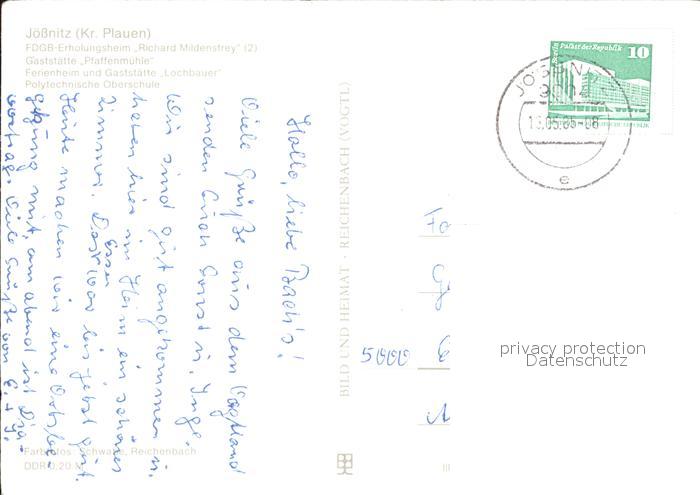 Jößnitz (Kr. Plauen)
FDGB-Erholungsheim „Richard Mildenstrey" (2)
Gaststätte „Pfaffenmühle"
Ferienheim und Gaststätte „Lochbauer"
Polytechnische Oberschule
Hallo, liebe Bach's!
Viele Grüße aus dem Vogtland
senden Euch Ernst u. Inge.
Wir sind gut angekommen u.
haben hier im Heim ein schönes
Zimmer. Das Essen war bis jetzt gut.
Heute machen wir eine Ortsbe-
gehung mit, am Abend ist Dia-
vortrag. Viele Grüße von E. + I.
Farbfotos: Schwabe, Reichenbach
DDR 0,20 M
BILD UND HEIMAT · REICHENBACH (VOGTL)
Berlin Palast der Republik 10
JÖSSNITZ
9014
13.05.85-08
e
5000
privacy protection
Datenschutz